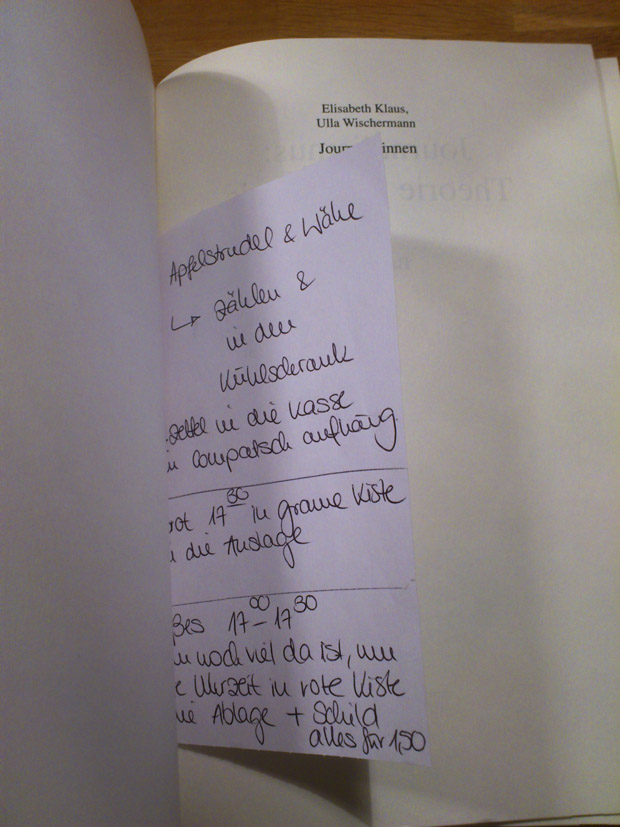 Elisabeth Klaus,
Ulla Wischermann
Jour innen
Apfelstrudel & Wähe
↳ zählen &
in den
Kühlschrank
Zettel in die Kasse
n Compatsch aufhäng
rot 17 30 in graue Kiste
n die Auslage
ßes 17 00 - 17 30
nn noch viel da ist, um
e Uhrzeit in rote Kiste
die Ablage + Schild
alles für 1,50